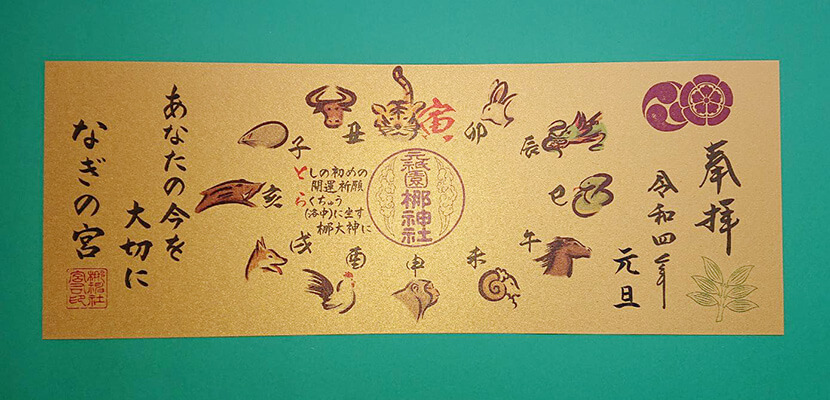 奉拝
令和四年
元旦
子
丑
寅
卯
辰
巳
午
未
申
酉
戌
亥
としの初めの
開運祈願
らくちゅう
(洛中)に坐す
梛大神に
元祇園
梛神社
あなたの今を
大切に
なぎの宮